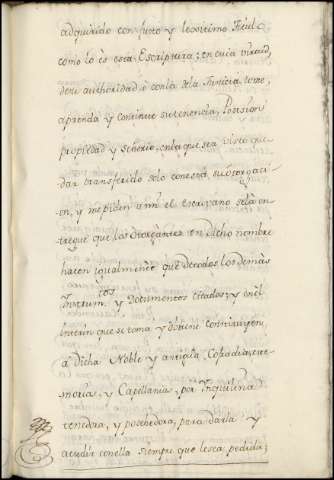 adquirido con justo y lexitimo titulo
como lo és està Escriptura; en cuia virtud,
de su authoridad ó con la de la Justicia, tome,
aprenda y continue su tenencia, Posesion
propiedad y señorio, en la que sea visto que-
dar transferido solo con esta su otorgaci-
on, y me piden à mi el escrivano se la en-
tregue que los otorgantes en dicho nombre
hacen igualmente que de todos los demàs
Instrumtos y Documentos citados; y en el
interin que se toma y obtiene constituyen
à dicha Noble y antigua, Cofradia, me-
morias, y Capellania, por Inquilina
tenedora, y posehedora, para darla y
acudir con ella siempre que les sea pedida;